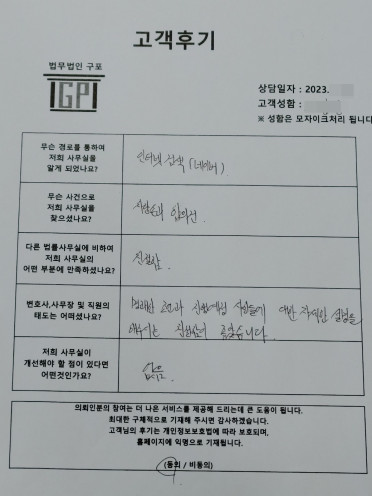 고객후기
법무법인 구포
GP
상담일자 : 2023.
고객성함 :
※ 성함은 모자이크처리 됩니다
무슨 경로를 통하여
저희 사무실을
알게 되었나요?
인터넷 검색 (네이버)
무슨 사건으로
저희 사무실을
찾으셨나요?
다른 법률사무실에 비하여
저희 사무실의
어떤 부분에 만족하셨나요?
친절함.
변호사,사무장 및 직원의
태도는 어떠셨나요?
설명을
해주시는
좋았습니다.
저희 사무실이
개선해야 할 점이 있다면
어떤것인가요?
없음
의뢰인분의 참여는 더 나은 서비스를 제공해 드리는데 큰 도움이 됩니다.
최대한 구체적으로 기재해 주시면 감사하겠습니다.
고객님의 후기는 개인정보보호법에 따라 보호되며,
홈페이지에 익명으로 기재됩니다.
(동의 / 비동의)